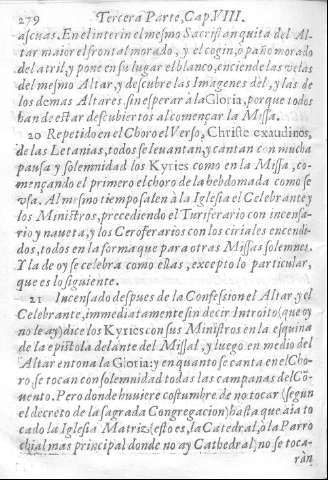 279 Tercera Parte, Cap. VIII.
ascuas. En el interin el mesmo Sacristan quita del Al-
tar maior el frontal morado, y el cogin, ò paño morado
del atril, y pone en su lugar el blanco, enciende las velas
del mesmo Altar, y descubre las Imagenes del, y las de
los demas Altares sin esperar à la Gloria, porque todos
han de estar descubiertos al començar la Missa.
20 Repetido en el Choro el Verso, Christe exaudinos,
de las Letanias, todos se levantan, y cantan con mucha
pausa y solemnidad los Kyries como en la Missa, co-
mençando el primero el choro de la hebdomada como se
vsa. Al mesmo tiempo salen à la Iglesia el Celebrante y
los Ministros, precediendo el Turiferario con incensa-
rio y naueta, y los Ceroferarios con los ciriales encendi-
dos, todos en la forma que para otras Missas solemnes.
Y la de oy se celebra como estas, excepto lo particular,
que es lo siguiente.
21 Incensado despues de la Confession el Altar, y el
Celebrante, immediatamente sin decir Introito (que oy
no le ay) dice los Kyries con sus Ministros en la esquina
de la epistola delante del Missal, y luego en medio del
Altar entona la Gloria: y en quanto se canta en el Cho-
ro, se tocan con solemnidad todas las campanas del Cō-
uento. Pero donde huviere costumbre de no tocar (segun
el decreto de la sagrada Congregacion) hasta que aia to
cado la Iglesia Matriz (esto es, la Catedral, ò la Parro
chial mas principal donde no ay Cathedral) no se toca-
ràn